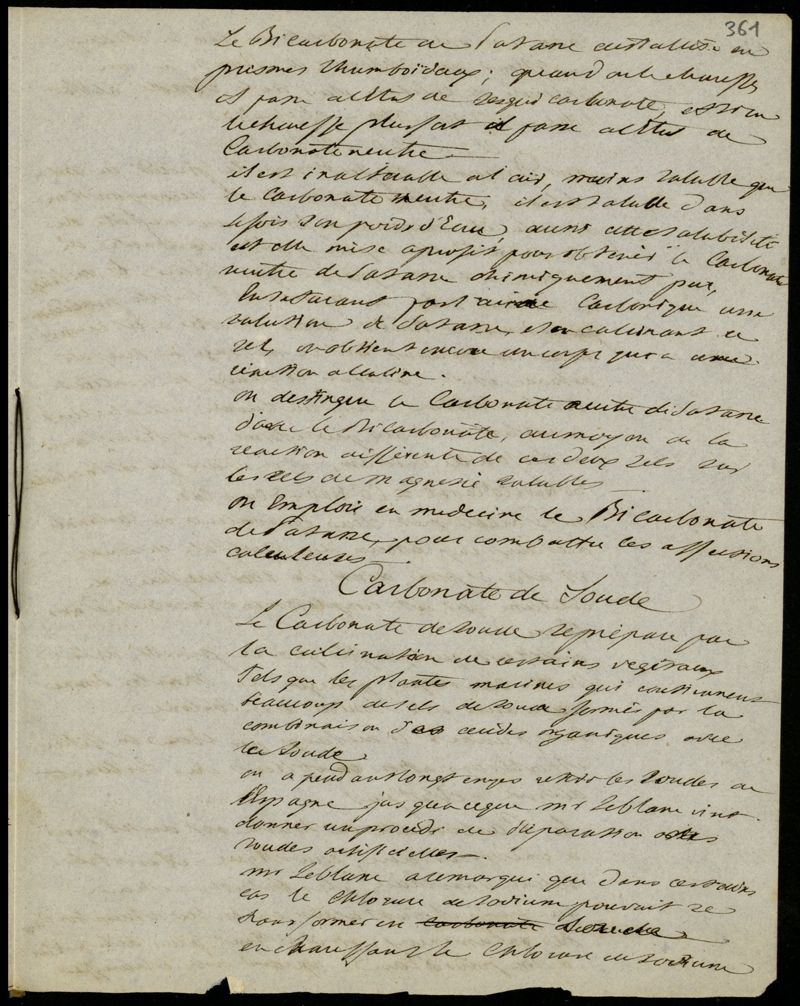 361
Le Bicarbonate de Potasse cristallise en
prismes rhumboïdaux; quand on le chauffe
il passe à l'état de sesqui carbonate, et si on
le chauffe plus fort il passe à l'état de
Carbonate neutre
il est inaltérable à l'air, moins soluble que
le Carbonate neutre, il est soluble dans
fois son poids d'Eau, aussi cette solubilité
est elle mise à profit pour obtenir le Carbonate
neutre de Potasse chimiquement pur,
En saturant par l'acide Carbonique une
solution de Potasse, et en calcinant ce
sel, on obtient encore un corps qui a une
réaction alcaline.
on distingue le Carbonate neutre de Potasse
d'avec le Bicarbonate, au moyen de la
réaction différente de ces deux sels sur
les sels de magnésie solubles
on Emploie en medecine le Bicarbonate
de Potasse, pour combattre les affections
calculeuses
Carbonate de Soude
Le Carbonate de soude se prépare par
la calcination de certains végétaux
tels que les plantes marines qui contiennent
beaucoup de sels de soude formés par la
combinaison des acides organiques avec
la Soude
on a pendant longtemps retiré les soudes de
l'Espagne jusqu'à ce que mr Leblanc vint
donner un procédé de préparation des
soudes artificielles.
mr Leblanc a remarqué que dans certains
cas le Chlorure de sodium pouvait se
transformer en carbonate de soude
en chauffant le Chlorure de sodium